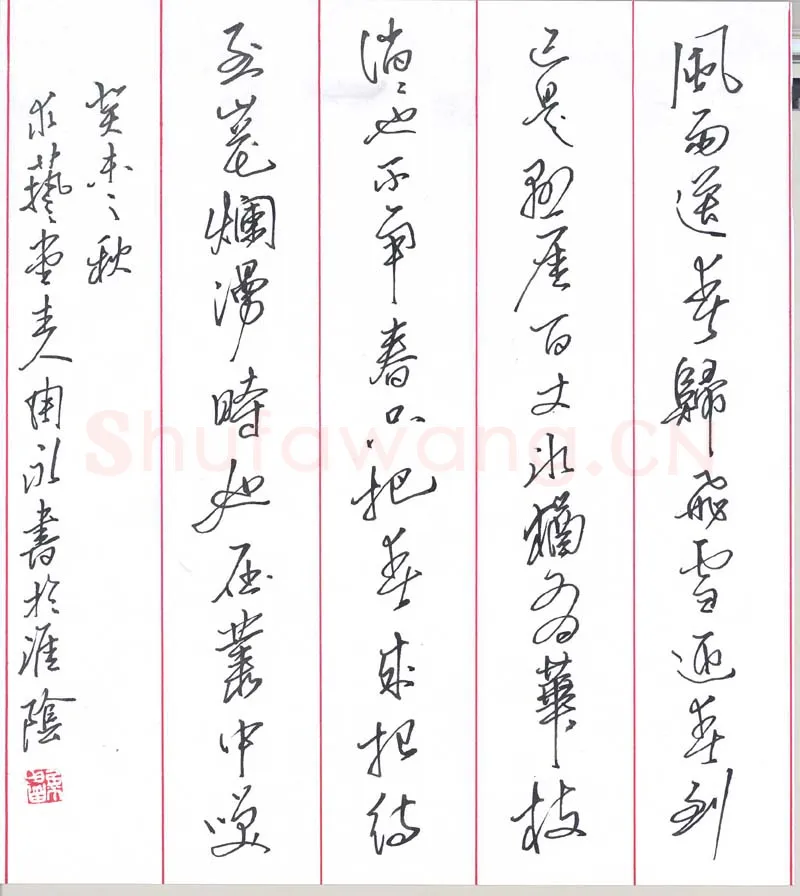 風雨送春歸飛雪迎春到
已是懸崖百丈冰猶有華枝
俏〻也不爭春只把春来报待
到山花爛漫時她在叢中咲
癸未之秋
求藝堂主人永書於淮陰
Shufawang.CN